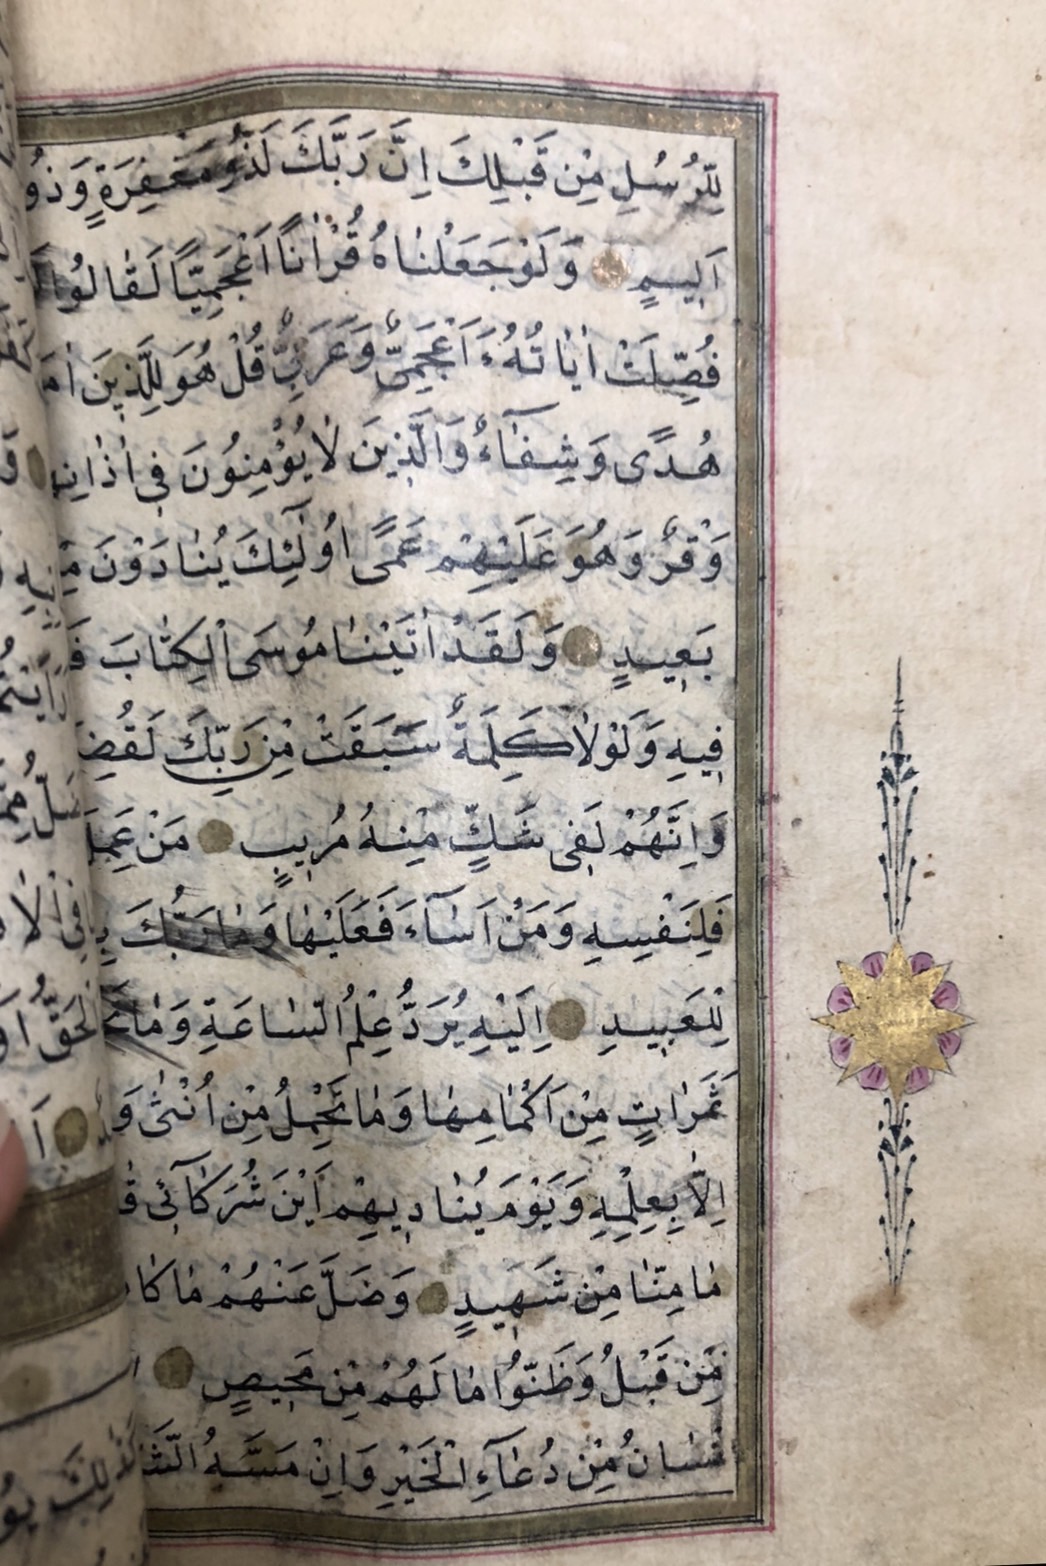 لِلرُّسُلِ مِنْ قَبْلِكَ اِنَّ رَبَّكَ لَذُو مَغْفِرَةٍ وَذُو
اَلِيمٍ وَلَوْ جَعَلْنَاهُ قُرْاٰنًا اَعْجَمِيًّا لَقَالُوا
فُصِّلَتْ اٰيَاتُهُ ءَاَعْجَمِىٌّ وَعَرَبِىٌّ قُلْ هُوَ لِلَّذِينَ
هُدًى وَشِفَآءٌ وَالَّذِينَ لَا يُؤْمِنُونَ فِى
وَقْرٌ وَهُوَ عَلَيْهِمْ عَمًى اُولٰٓئِكَ يُنَادَوْنَ
بَعِيدٍ وَلَقَدْ اٰتَيْنَا مُوسَى الْكِتَابَ
فِيهِ وَلَوْلَا كَلِمَةٌ سَبَقَتْ مِنْ رَبِّكَ
وَاِنَّهُمْ لَفِى شَكٍّ مِنْهُ مُرِيبٍ مَنْ عَمِلَ
فَلِنَفْسِهِ وَمَنْ اَسَآءَ فَعَلَيْهَا وَمَا رَبُّكَ
لِلْعَبِيدِ اِلَيْهِ يُرَدُّ عِلْمُ السَّاعَةِ وَمَا
ثَمَرَاتٍ مِنْ اَكْمَامِهَا وَمَا تَحْمِلُ مِنْ اُنْثٰى
اِلَّا بِعِلْمِهِ وَيَوْمَ يُنَادِيهِمْ اَيْنَ شُرَكَآئِى
مَا مِنَّا مِنْ شَهِيدٍ وَضَلَّ عَنْهُمْ مَا
مِنْ قَبْلُ وَظَنُّوا مَا لَهُمْ مِنْ مَحِيصٍ
مِنْ دُعَآءِ الْخَيْرِ وَاِنْ مَسَّهُ